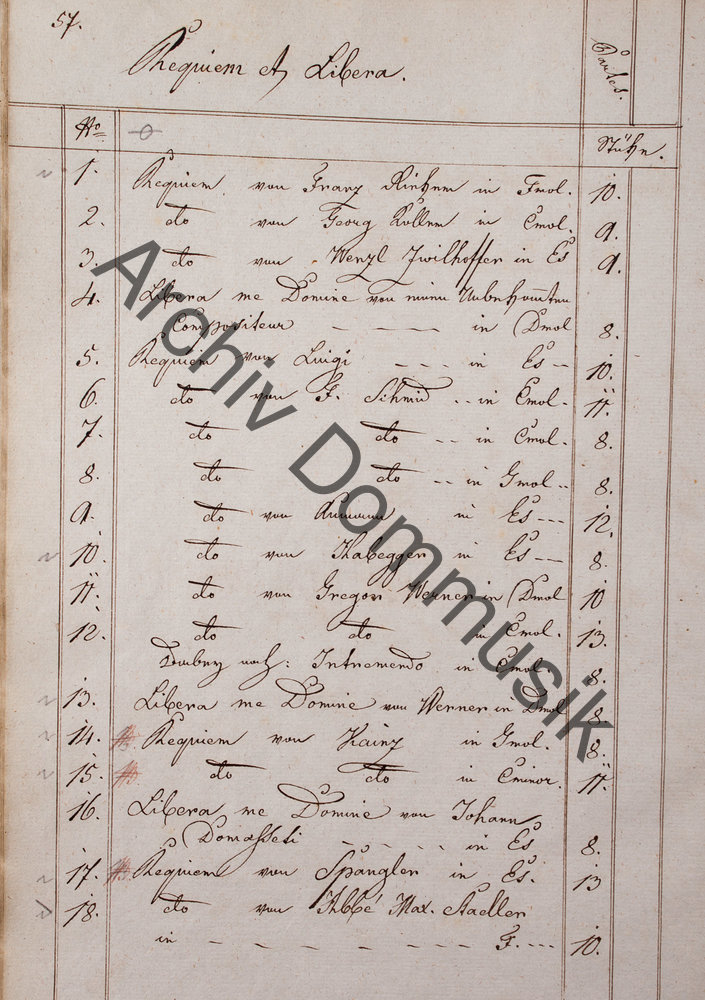 57.
Requiem et Libera.
Partes.
No
Stüke.
1. Requiem von Franz in Fmol. 10.
2. do von Georg in Cmol. 9.
3. do von Wenzl Zwilhoffer in Es 9.
4. Libera me Domine von einem Unbekannten
Compositeur - - - - in Dmol 8.
5. Requiem von Luigi - - - in Es - 10.
6. do von F. Schmid - - in Cmol. 11.
7. do do - - in Cmol. 8.
8. do do - - in Gmol - - 8.
9. do von Aumann in Es - - - 12.
10. do von Habegger in Es - - 8.
11. do von Gregor Werner in Dmol 10
12. do do in Cmol. 13.
noch: Intremendo in Cmol. 8.
13. Libera me Domine von Werner in Dmol 8
14. Requiem von Kainz in Gmol. 8.
15. do do in Cminor. 11.
16. Libera me Domine von Johann
Domasseti - - - - in Es 8.
17. Requiem von Spangler in Es. 13
18. do von Abbé Max. Stadler
in - - - - - - F. - - - 10.
Archiv Dommusik